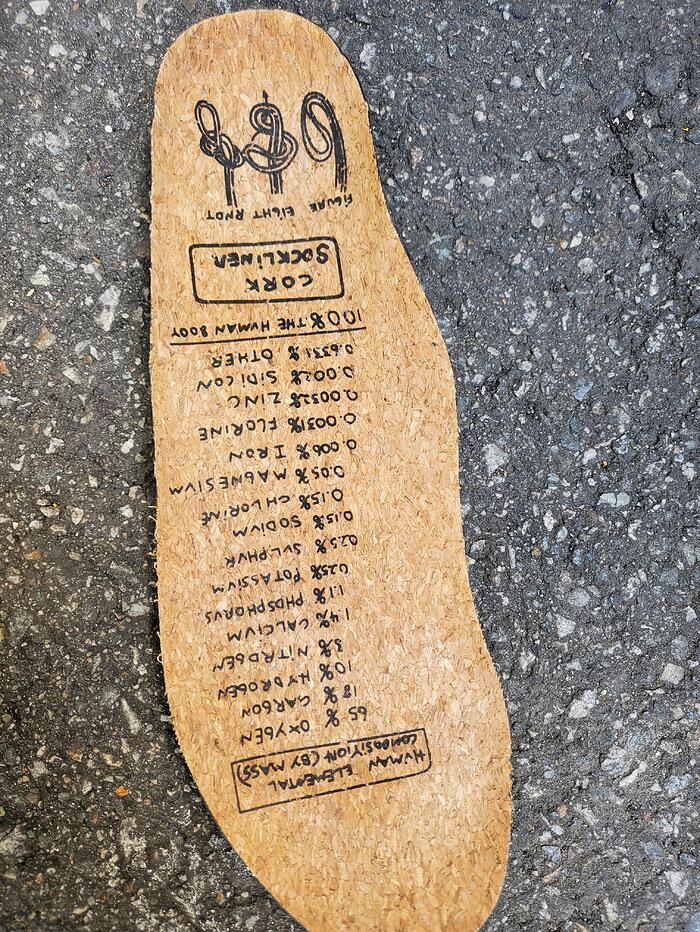 HUMAN ELEMENTAL
COMPOSITION (BY MASS)
65% OXYGEN
18% CARBON
10% HYDROGEN
3% NITROGEN
1.4% CALCIUM
1.1% PHOSPHORUS
0.25% POTASSIUM
0.25% SULPHUR
0.15% SODIUM
0.15% CHLORINE
0.05% MAGNESIUM
0.006% IRON
0.0031% FLORINE
0.0032% ZINC
0.002% SIDICON
0.6331% OTHER
100% THE HUMAN BODY
CORK
SOCKLINER
FIGURE EIGHT KNOT